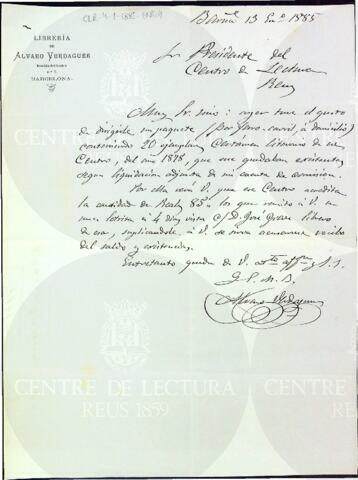 LIBRERÍA
DE
ALVARO VERDAGUER
BARCELONA.
Barna 13 En.º 1885
Sr. Presidente del
Centro de Lectura
Reus
Muy Sr. mio: ayer tuve el gusto
de dirigirle un paquete (por ferro-carril, á domicilio)
conteniendo 20 ejemplares Certamen literario de ese
Centro, del año 1878, que me quedaban existentes
segun liquidacion adjunta de mi cuenta de comision.
Por ella verá V. que ese Centro acredita
la cantidad de Reales 85 los que remito á V. en
una letrita á 4 dias vista c/ D. José
de esa, suplicandole á V. se sirva acusarme recibo
del saldo y existencias.
Entretanto queda de V. atto. affmo. y S. S.
Q. S. M. B.
Alvaro Verdaguer
CENTRE DE LECTURA
REUS 1859
CENTRE DE LECTURA
REUS 1859